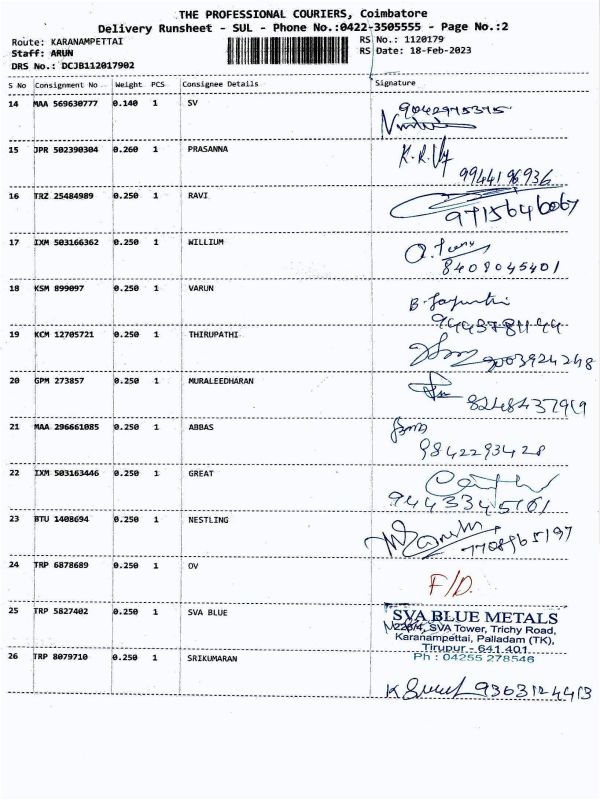 THE PROFESSIONAL COURIERS, Coimbatore
Delivery Runsheet - SUL - Phone No.:0422-3505555 - Page No.:2
Route: KARANAMPETTAI RS No.: 1120179
Staff: ARUN RS Date: 18-Feb-2023
DRS No.: DCJB112017902
S No Consignment No Weight PCS Consignee Details Signature
14 MAA 569630777 0.140 1 SV 9042975375
15 JPR 502390304 0.260 1 PRASANNA
9944196936
16 TRZ 25484989 0.250 1 RAVI
9715646067
17 IXM 503166362 0.250 1 WILLIUM
8408045401
18 KSM 899097 0.250 1 VARUN
9443781144
19 KCM 12705721 0.250 1 THIRUPATHI
9003924248
20 GPM 273857 0.250 1 MURALEEDHARAN
8248437919
21 MAA 296661085 0.250 1 ABBAS
9842293428
22 IXM 503163446 0.250 1 GREAT
9443345161
23 BTU 1408694 0.250 1 NESTLING
7708965197
24 TRP 6878689 0.250 1 OV F/D.
25 TRP 5827402 0.250 1 SVA BLUE SVA BLUE METALS
228/4, SVA Tower, Trichy Road,
Karanampettai, Palladam (TK),
Tirupur - 641 401.
Ph : 04255 278546
26 TRP 8079710 0.250 1 SRIKUMARAN
9363124413